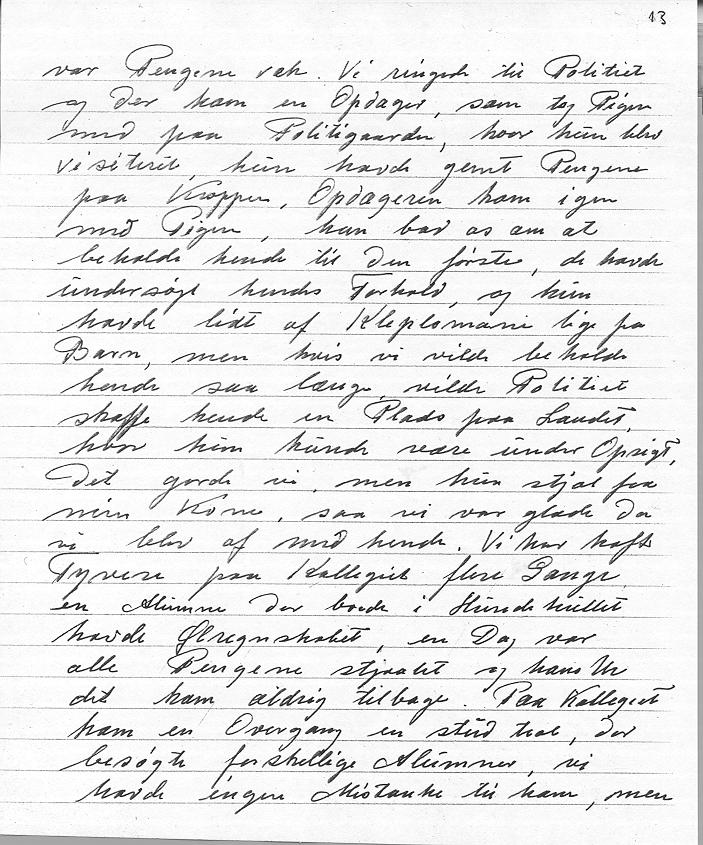 13
var Pengene væk. Vi ringede til Politiet
og der kom en Opdager, som tog Pigen
med paa Politigaarden, hvor hun blev
visiteret, hun havde gemt Pengene
paa Kroppen, Opdageren kom igen
med Pigen, han bad os om at
beholde hende til den første, de havde
undersøgt hendes Forhold, og hun
havde lidt af Kleptomani lige fra
Barn, men hvis vi vilde beholde
hende saa længe, vilde Politiet
skaffe hende en Plads paa Landet,
hvor hun kunde være under Opsigt,
Det gjorde vi, men hun stjal fra
min Kone, saa vi var glade da
vi blev af med hende. Vi har haft
Tyvere paa Kollegiet flere Gange,
en Alumne der boede i Hundehullet
havde Ølregnskabet, en Dag var
alle Pengene stjaalet og hans Ur
det kom aldrig tilbage. Paa Kollegiet
kom en Overgang en stud. teol, der
besøgte forskellige Alumner, vi
havde ingen Mistanke til ham, men